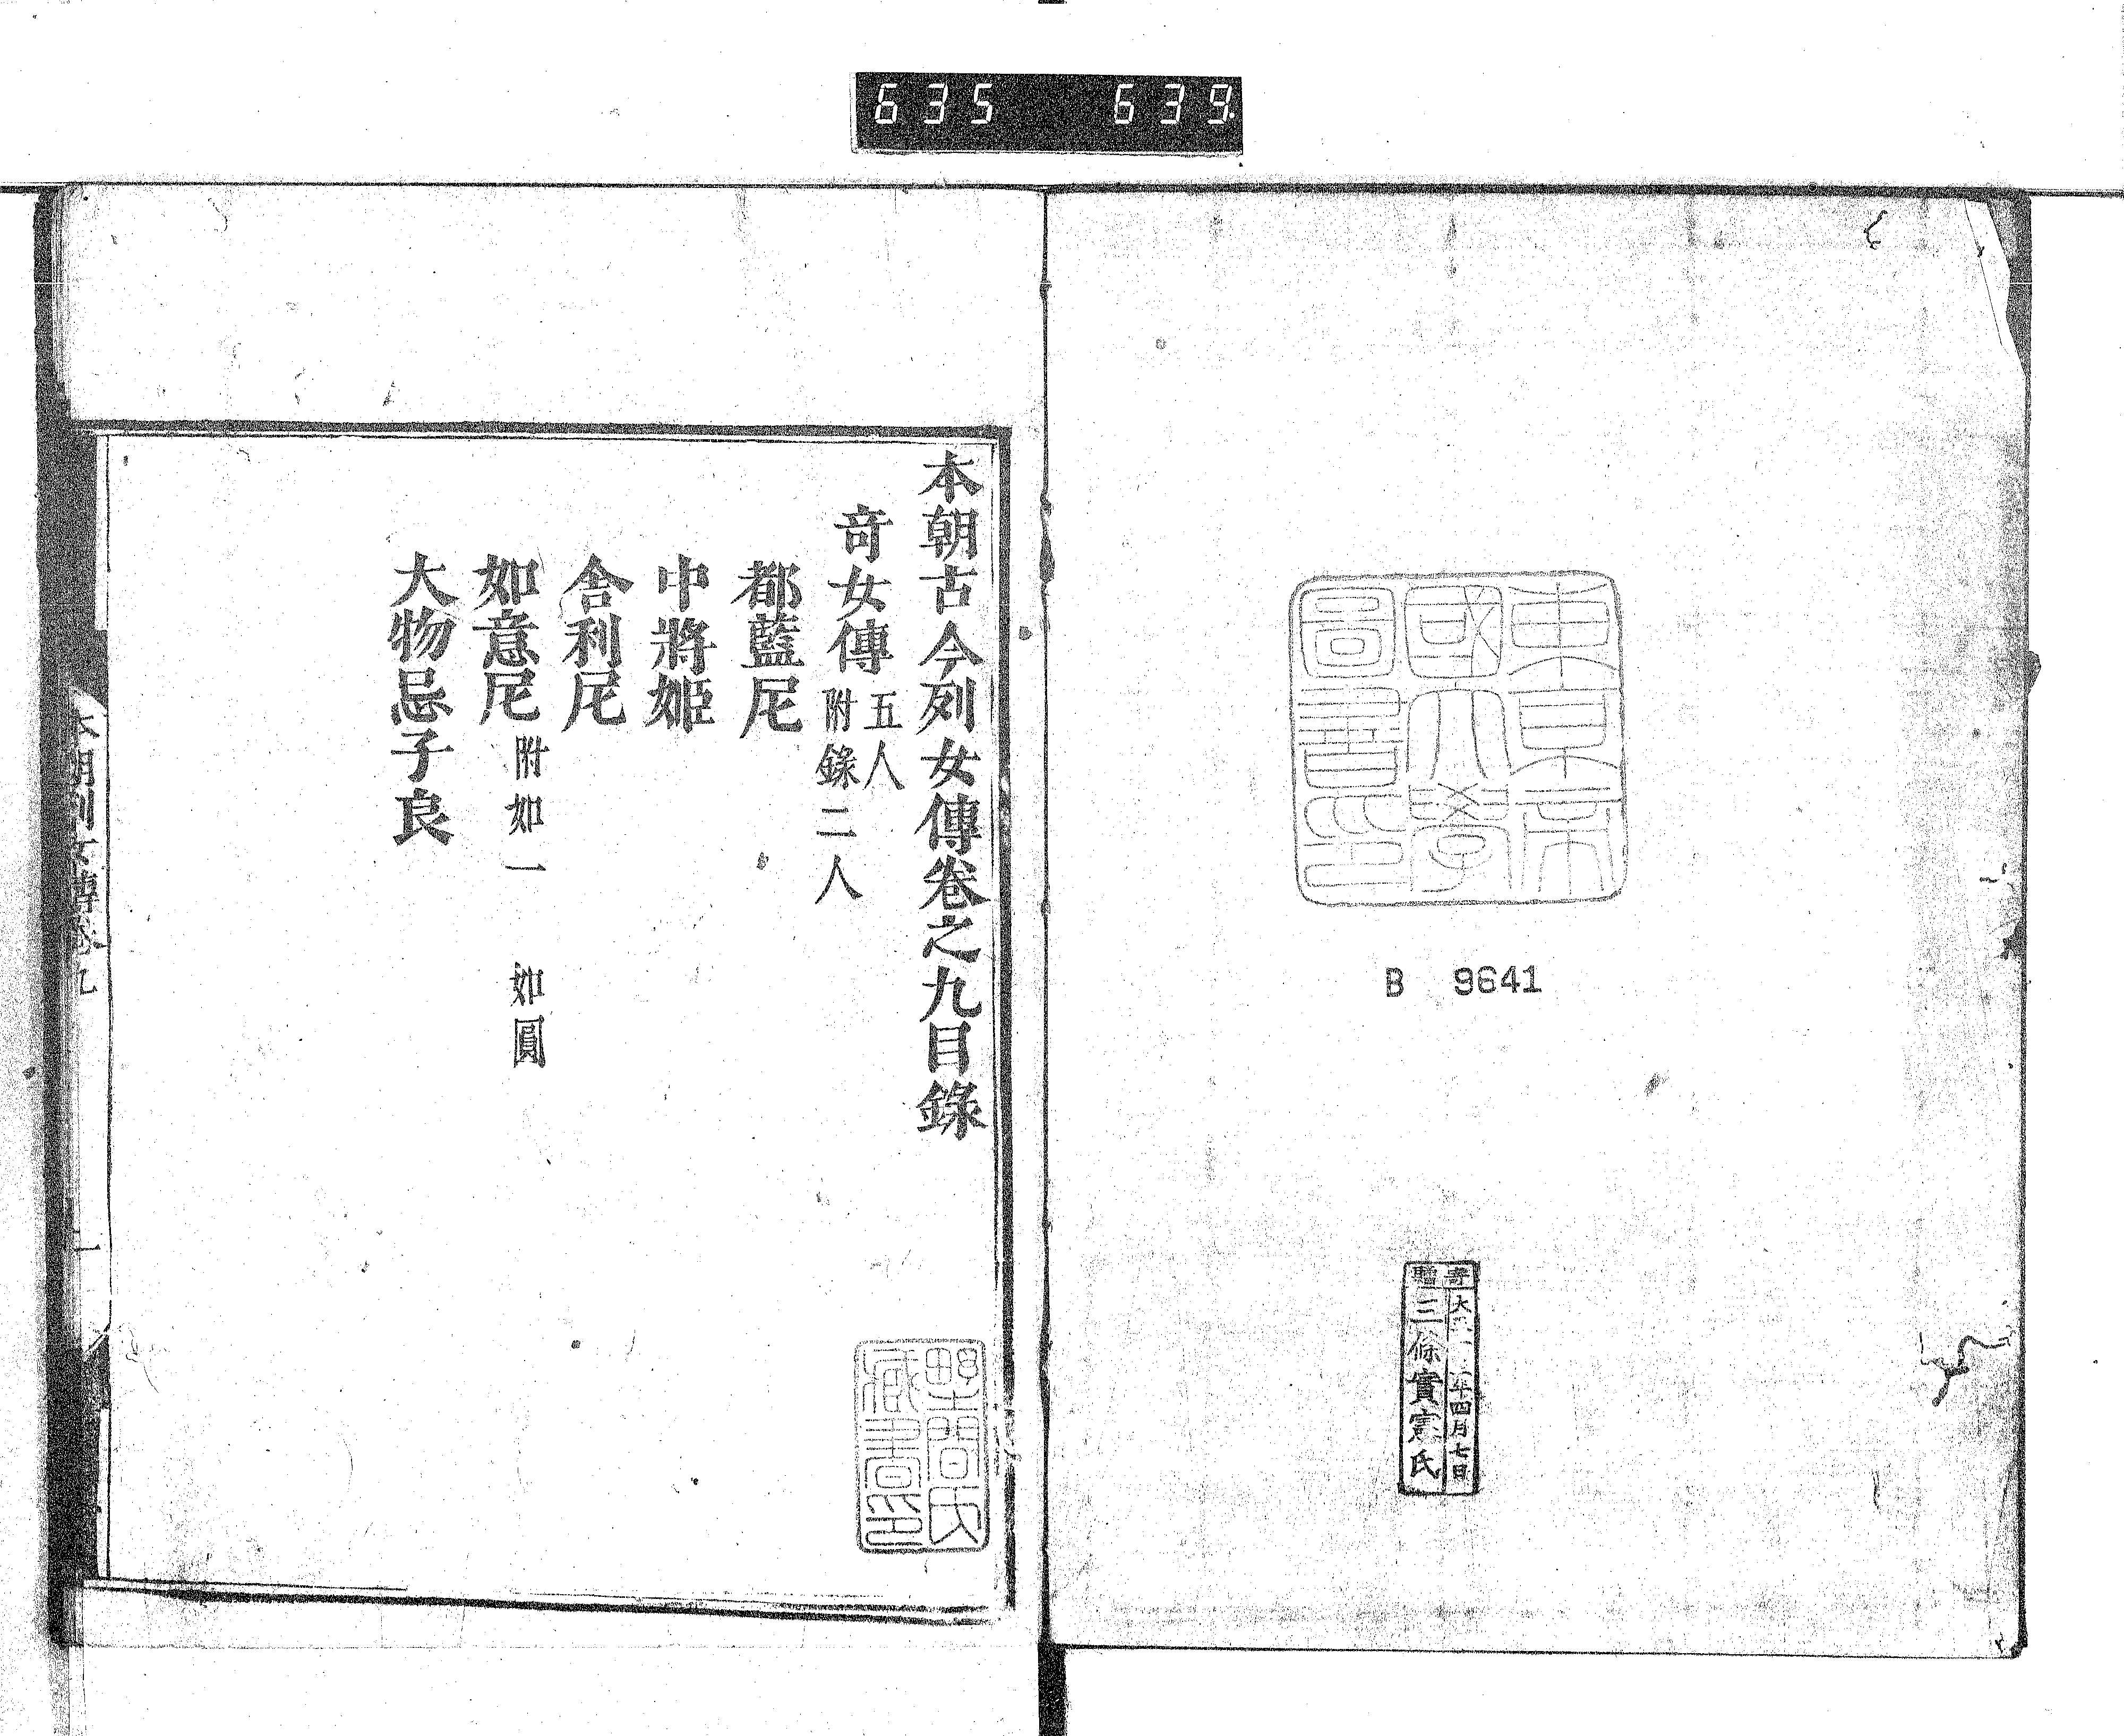 635 639
東京帝
國大學
圖書印
B 9641
寄贈
大 年四月七日
三條實憲氏
本朝古今列女傳卷之九目錄
奇女傳 五人
附錄二人
都藍尼
中將姬
舎利尼
如意尼 附如一 如圓
大物忌子良
野間氏
藏書印
本朝列女傳卷九 一